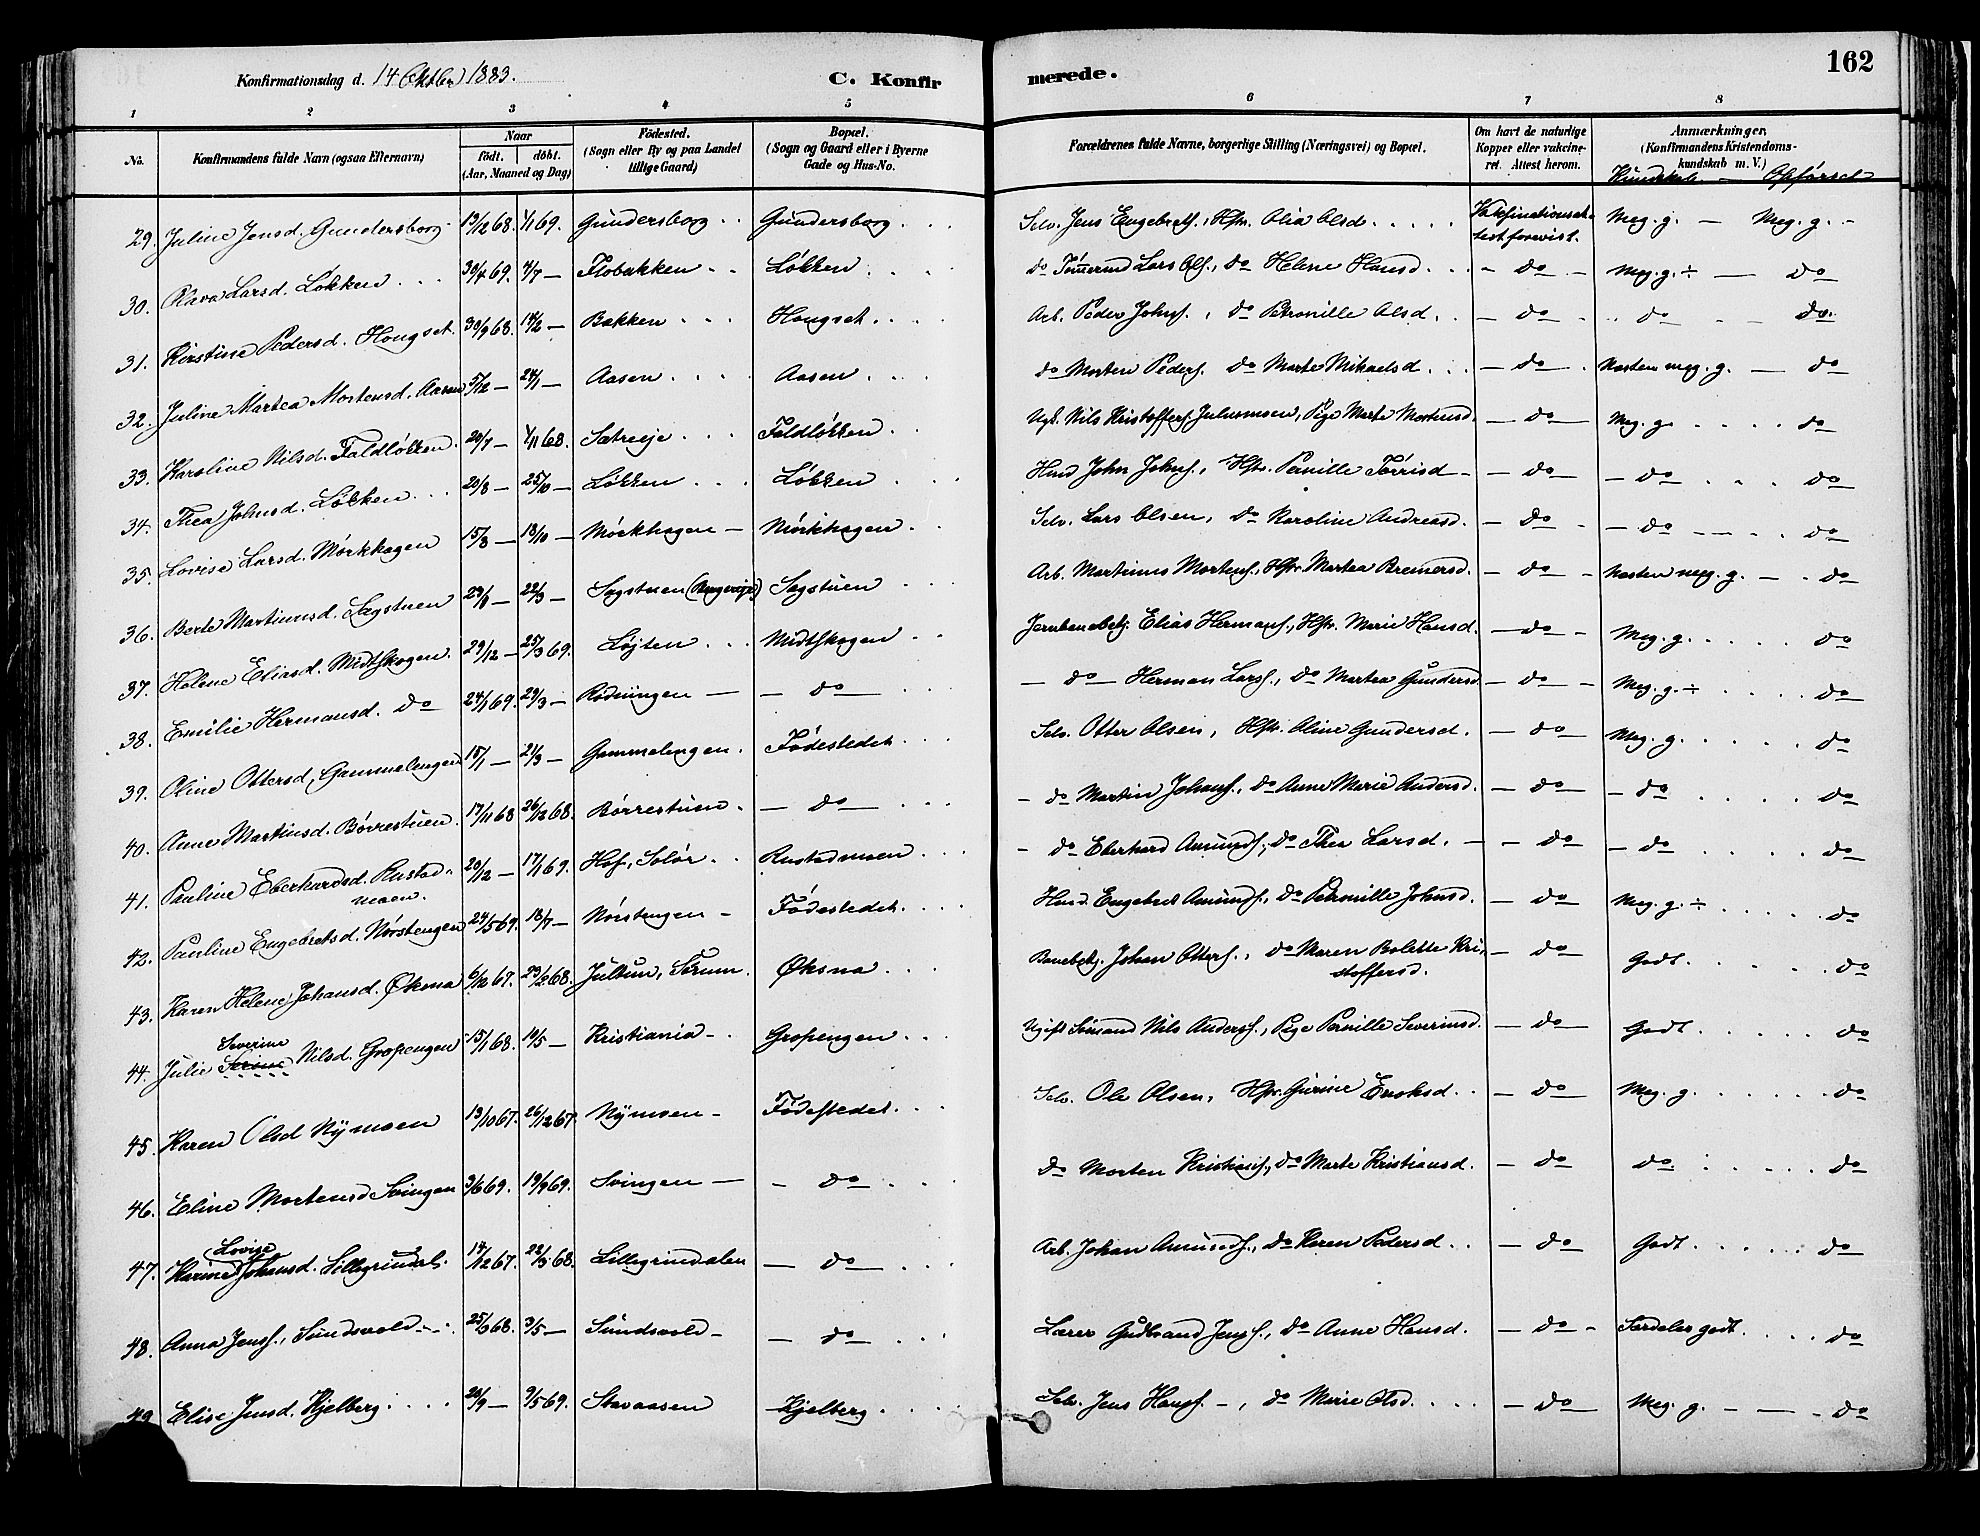 162
Konfirmationsdag d. 14 Oktbr 1883.
C. Konfirmerede.
1 2 3 4 5 6 7 8
No. Konfirmandens fulde Navn (ogsaa Efternavn) Naar født. døbt. (Aar, Maaned og Dag) Fødested. (Sogn eller By og paa Landet tillige Gaard) Bopæl. (Sogn og Gaard eller i Byerne Gade og Hus-No. Forældrenes fulde Navne, borgerlige Stilling (Næringsvei) og Bopæl. Om havt de naturlige Kopper eller vakcineret. Attest herom. Anmærkninger. (Konfirmandens Kristendomskundskab m. V.)
Kundskab — Opførsel
29. Juline Jensd. Gundersborg 19/12 68. 1/1 69. Gundersborg Gundersborg Selv. Jens Engebretf., Hstr. Olia Olsd Vaksinationsattest forevist. Meg. g. — Meg. g.
30. Olava Larsd. Løkken 30/4 69. 4/7 — Flobakken Løkken do Tømmermd Lars Olf., do Helene Hansd. do Meg. g. ÷ — do
31. Kirstine Pedersd. Hougset 30/9 68. 14/2 — Bakken Hougset Arb. Peder Johnf., do Petronille Olsd. do do do
32. Juline Martea Mortensd. Aasen 5/12 — 24/1 — Aasen Aasen do Morten Pedersf. do Marte Mikaelsd do Næsten meg. g. — do
33. Karoline Nilsd. Faldløkken 20/7 — 1/11 68. Sætreeje Faldløkken Ugt. Nils Kristoffersf. Julusmoen, Pige Marte Mortensd. do Meg. g. do
34. Thea Johnsd. Løkken 20/8 — 25/10 — Løkken Løkken Husmd John Johnf., Hstr. Pernille Torrisd do do do
35. Lovise Larsd. Mørkhagen 15/8 — 18/10 — Mørkhagen Mørkhagen Selv. Lars Olsen, do Karoline Andreasd. do do do
36. Berte Martinusd. Sagstuen 29/8 — 22/3 — Sagstuen Sagstuen Arb. Martinus Mortensf., Hstr. Martea Bremersd. do Næsten meg. g. — do
37. Helene Eliasd. Midtskogen. 29/12 — 25/3 69. Løjten Midtskogen Jernbanebetj. Elias Hermansf., Hstr. Marie Hansd. do Meg. g. do
38. Emilie Hermansd. do 24/1 69. 29/3 — Rødningen do do Herman Larsf., do Martea Gundersd do Meg. g. ÷ do
39. Oline Ottersd. Gammelengen 18/1 — 21/3 — Gammelengen. Fødestedet Selv. Otter Olsen, Hstr. Oline Gundersd. do Meg. g. do
40. Anne Martinsd. Børrestuen. 17/11 68 26/12 68. Børrestuen do do Martin Johansf., do Anne Marie Andersd. do do do
41. Pauline Eberhardsd. Rustad- 20/12 — 17/1 69. Hof, Solør Rustadmoen do Eberhard Amundsf., do Thea Larsd. do do do
moen.
42. Pauline Engebretsd. Nørstengen 24/5 69. 18/7 — Nørstengen Fødestedet. Husmd. Engebret Amundsf., do Petronille Johnsd. do Meg. g. ÷ do
43. Karen Helene Johansd. Øksna 6/12 67. 23/2 68. Julton, Sørum. Øksna Banebetj. Johan Ottersf., do Maren Bolette Kri- do Godt. do
stoffersd.
Severine
44. Julie Serine Nilsd. Gropengen 15/1 68. 10/5 — Kristiania Gropengen Ugift Sømand Nils Andersf., Pige Pernille Severinsd. do Godt do
45. Karen Olsd Nymoen 13/10 67. 26/12 67. Nymoen Fødestedet. Selv. Ole Olsen, Hstr. Gurine Enoksd. do Meg. g. do
46. Eline Mortensd. Svingen 3/6 69. 19/9 69. Svingen do do Morten Kristiansf., do Marte Kristiansd. do do do
Lovise
47. Karine Johansd. Lillegrindal. 14/12 67. 22/3 68. Lillegrindalen do Arb. Johan Amundsf., do Karen Pedersd do Godt do
48. Anna Jensf., Sundsvold 25/3 68. 3/5 — Sundsvold do Lærer Gudbrand Jensf., do Anne Hansd. do Særdeles godt. do
49 Elise Jensd. Kjelberg 20/9 — 9/5 69. Stavaasen Kjelberg Selv. Jens Hansf., do Marie Olsd. do Meg. g. do